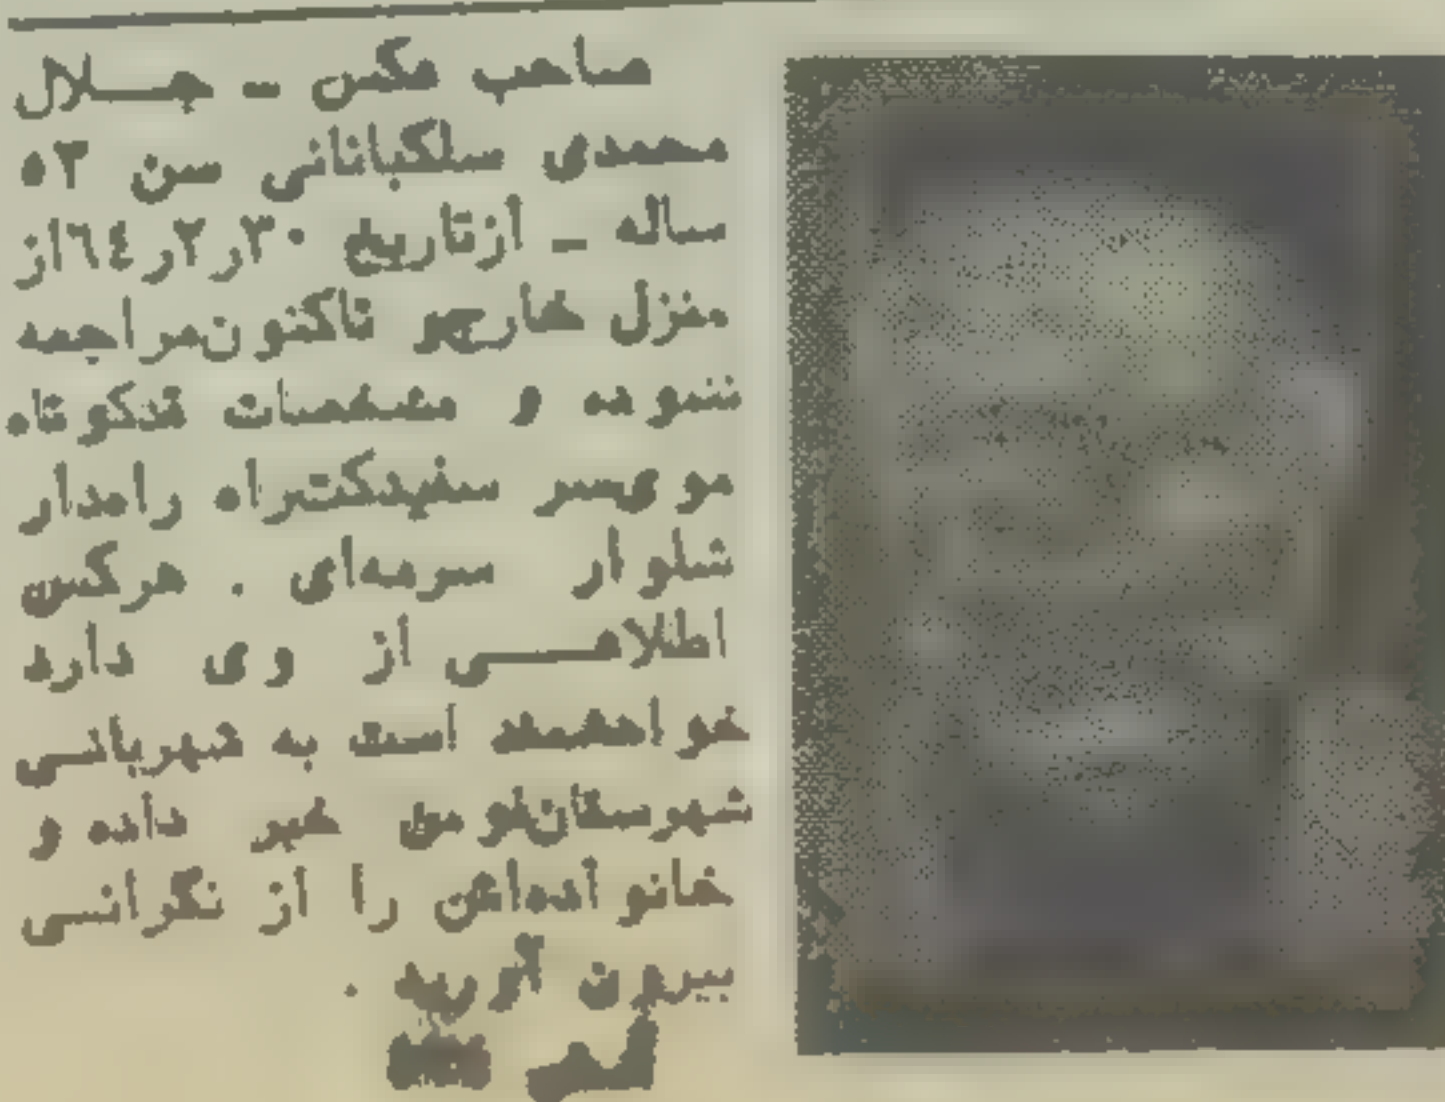 صاحب عکس - جلال
محمدی سلکبانانی سن ۵۳
ساله - از تاریخ ۳۰ر۲ر۶۴ از
منزل خارج و تاکنون مراجعه
ننموده و مشخصات قدکوتاه
موی سر سفید کت راه راه دار
شلوار سرمه‌ای . هرکس
اطلاعی از وی دارد
خواهشمند است به شهربانی
شهرستان خبر داده و
خانواده‌اش را از نگرانی
بیرون آورید .